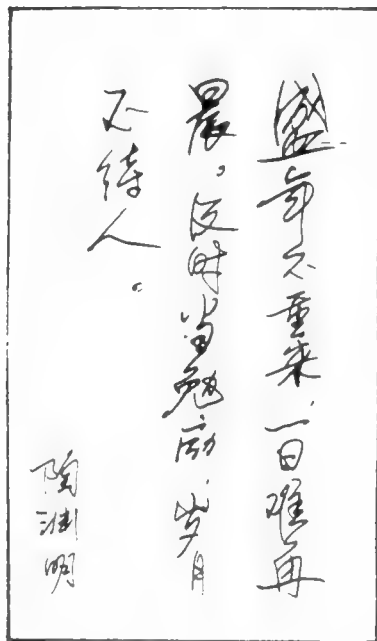 盛年不重来，一日难再
晨。及时当勉励，岁月
不待人。
陶渊明